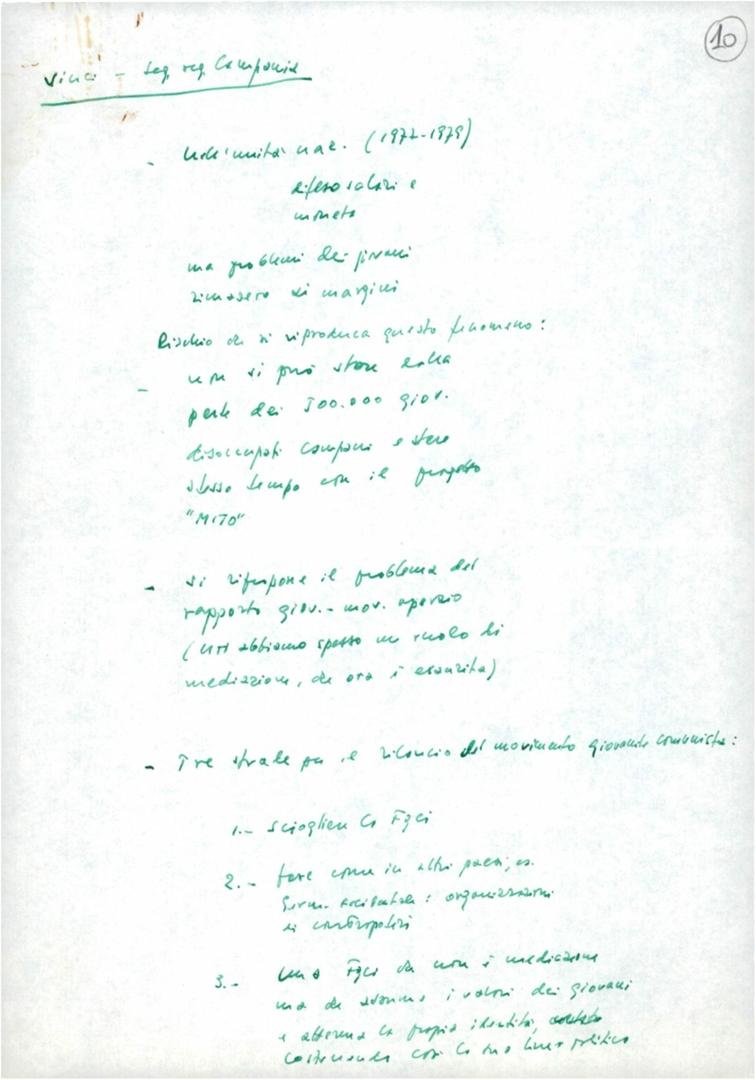 10
Vinci - Seg. reg. Campania
- Nell'unità naz. (1977-1979)
difesa salari e
moneta
ma problemi dei giovani
rimasero ai margini
Rischio che si riproduca questo fenomeno:
- non si può stare dalla
parte dei 500.000 giov.
disoccupati campani e stare
stesso tempo con il progetto
"MITO"
- si ripropone il problema del
rapporto giov. - mov. operaio
(noi abbiamo spesso un ruolo di
mediazione, che ora è esaurita)
- Tre strade per il rilancio del movimento giovanile comunista:
1.- Sciogliere la Fgci
2.- fare come in altri paesi, es.
Germ. occidentale: organizzazioni
di
3.- Una Fgci che non è mediazione
ma che assume i valori dei giovani
e afferma la propria identità,
con la sua linea politica